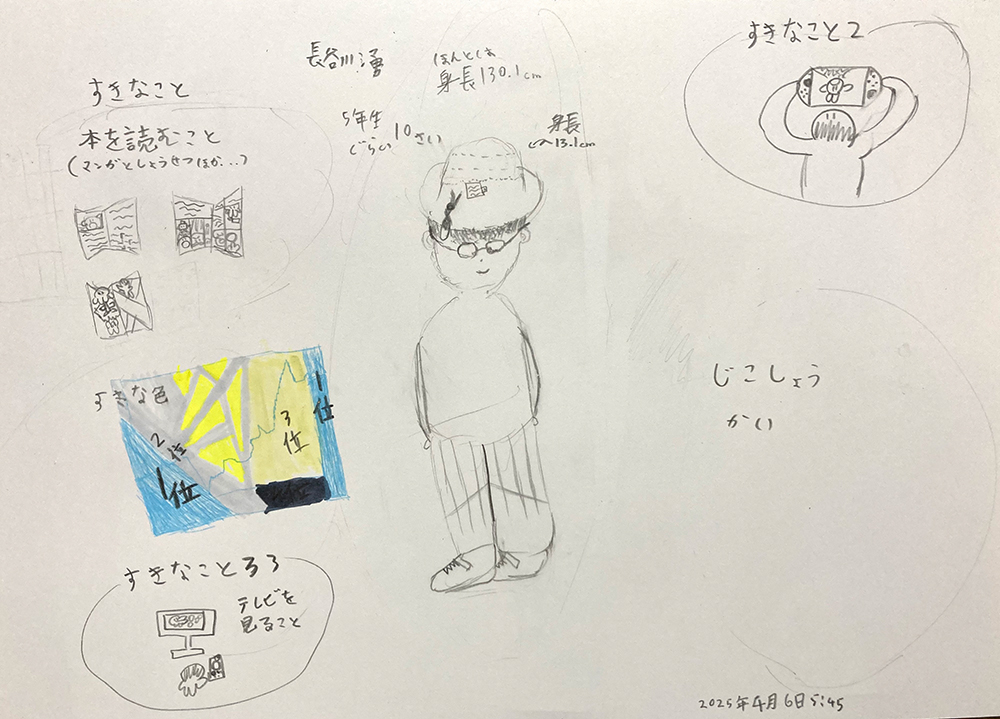 長谷川湧
ほんとは
身長130.1cm
5年生
ぐらい10さい
身長
13.1cm
すきなこと
本を読むこと
(マンガとしょうせつほか...)
すきな色
1位
2位
3位
1位
すきなこと2
じこしょう
かい
すきなこと3 3
テレビを
見ること
2025年4月6日5:45